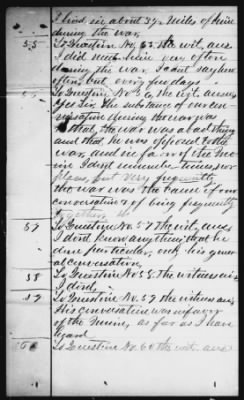 I lived sir about 3½ miles of him
during the war.
55 To Question No. 55 the wit. ans.
I did see him very often
during the war, I cant say how
often, but every few days.
To Question No. 56, the wit. answers
Yes Sir, The substance of our con
versation during the war was
that, the war was a bad thing
and that he was opposed to the
war, and so far as
I dont remember times nor
places, but Very frequently
the war was the cause of our
conversation & of being frequently
together
57 To Question No. 57 the wit, ans
I dont know anything that he
done particular, only his gener
al conversation.
58 To Question No. 58, the witness ans
I did,
59 To Question No. 59 the witness ans
His conversation was in favor
of the Union, as far as I have
heard
60 To Question No. 60 the wit. ans